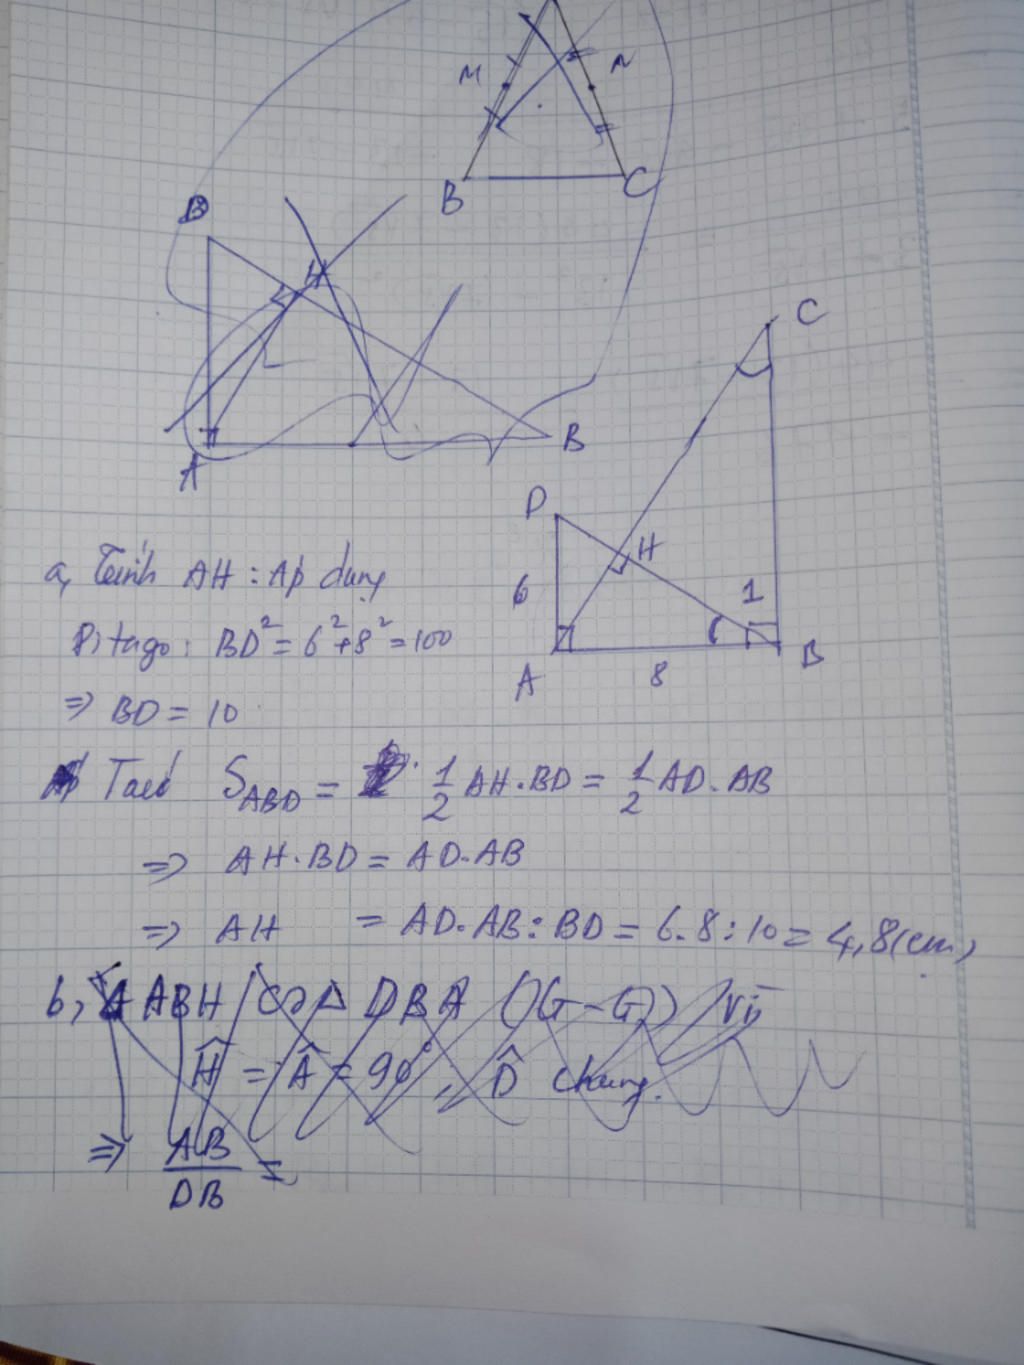 M N
B C
B
H
A B
C
D
H
6 1
A 8 B
a, Tính AH : Áp dụng
Pitago : BD² = 6² + 8² = 100
=> BD = 10
Ta có S_ABD = 1/2 AH . BD = 1/2 AD . AB
=> AH . BD = AD . AB
=> AH = AD . AB : BD = 6 . 8 : 10 = 4,8 (cm)
b, Δ ABH ∽ Δ DBA (G - G) Vì
Ĥ = Â = 90°, D̂ chung.
=> AB/DB =